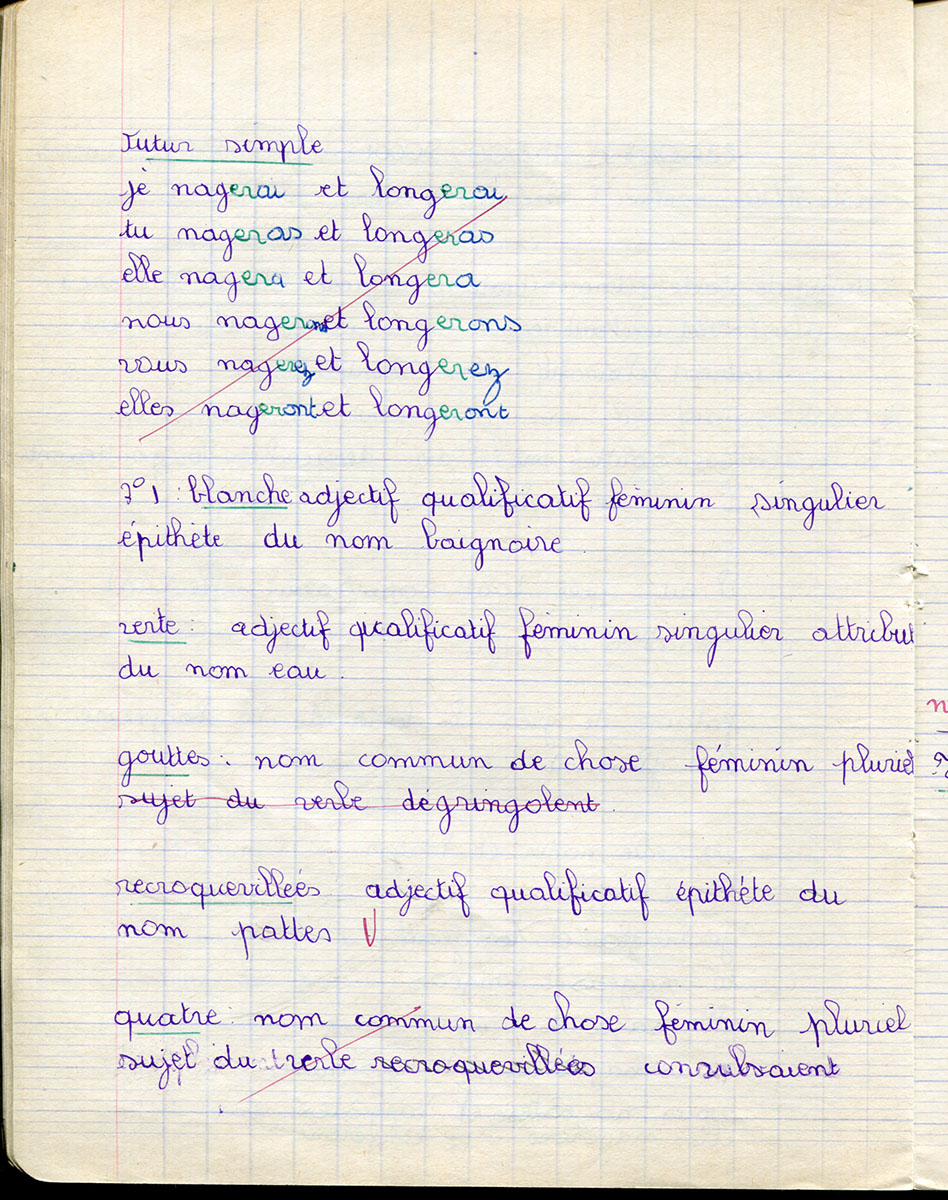 Futur simple
je nagerai et longerai
tu nageras et longeras
elle nagera et longera
nous nagerons et longerons
vous nagerez et longerez
elles nageront et longeront
7° 1 : blanche adjectif qualificatif féminin singulier
épithète du nom baignoire
verte : adjectif qualificatif féminin singulier attribut
du nom eau.
gouttes : nom commun de chose féminin pluriel
sujet du verbe dégringolent.
recroquevillées adjectif qualificatif épithéte du
nom pattes V
quatre : nom commun de chose féminin pluriel
sujet du verbe recroquevillées convulsaient